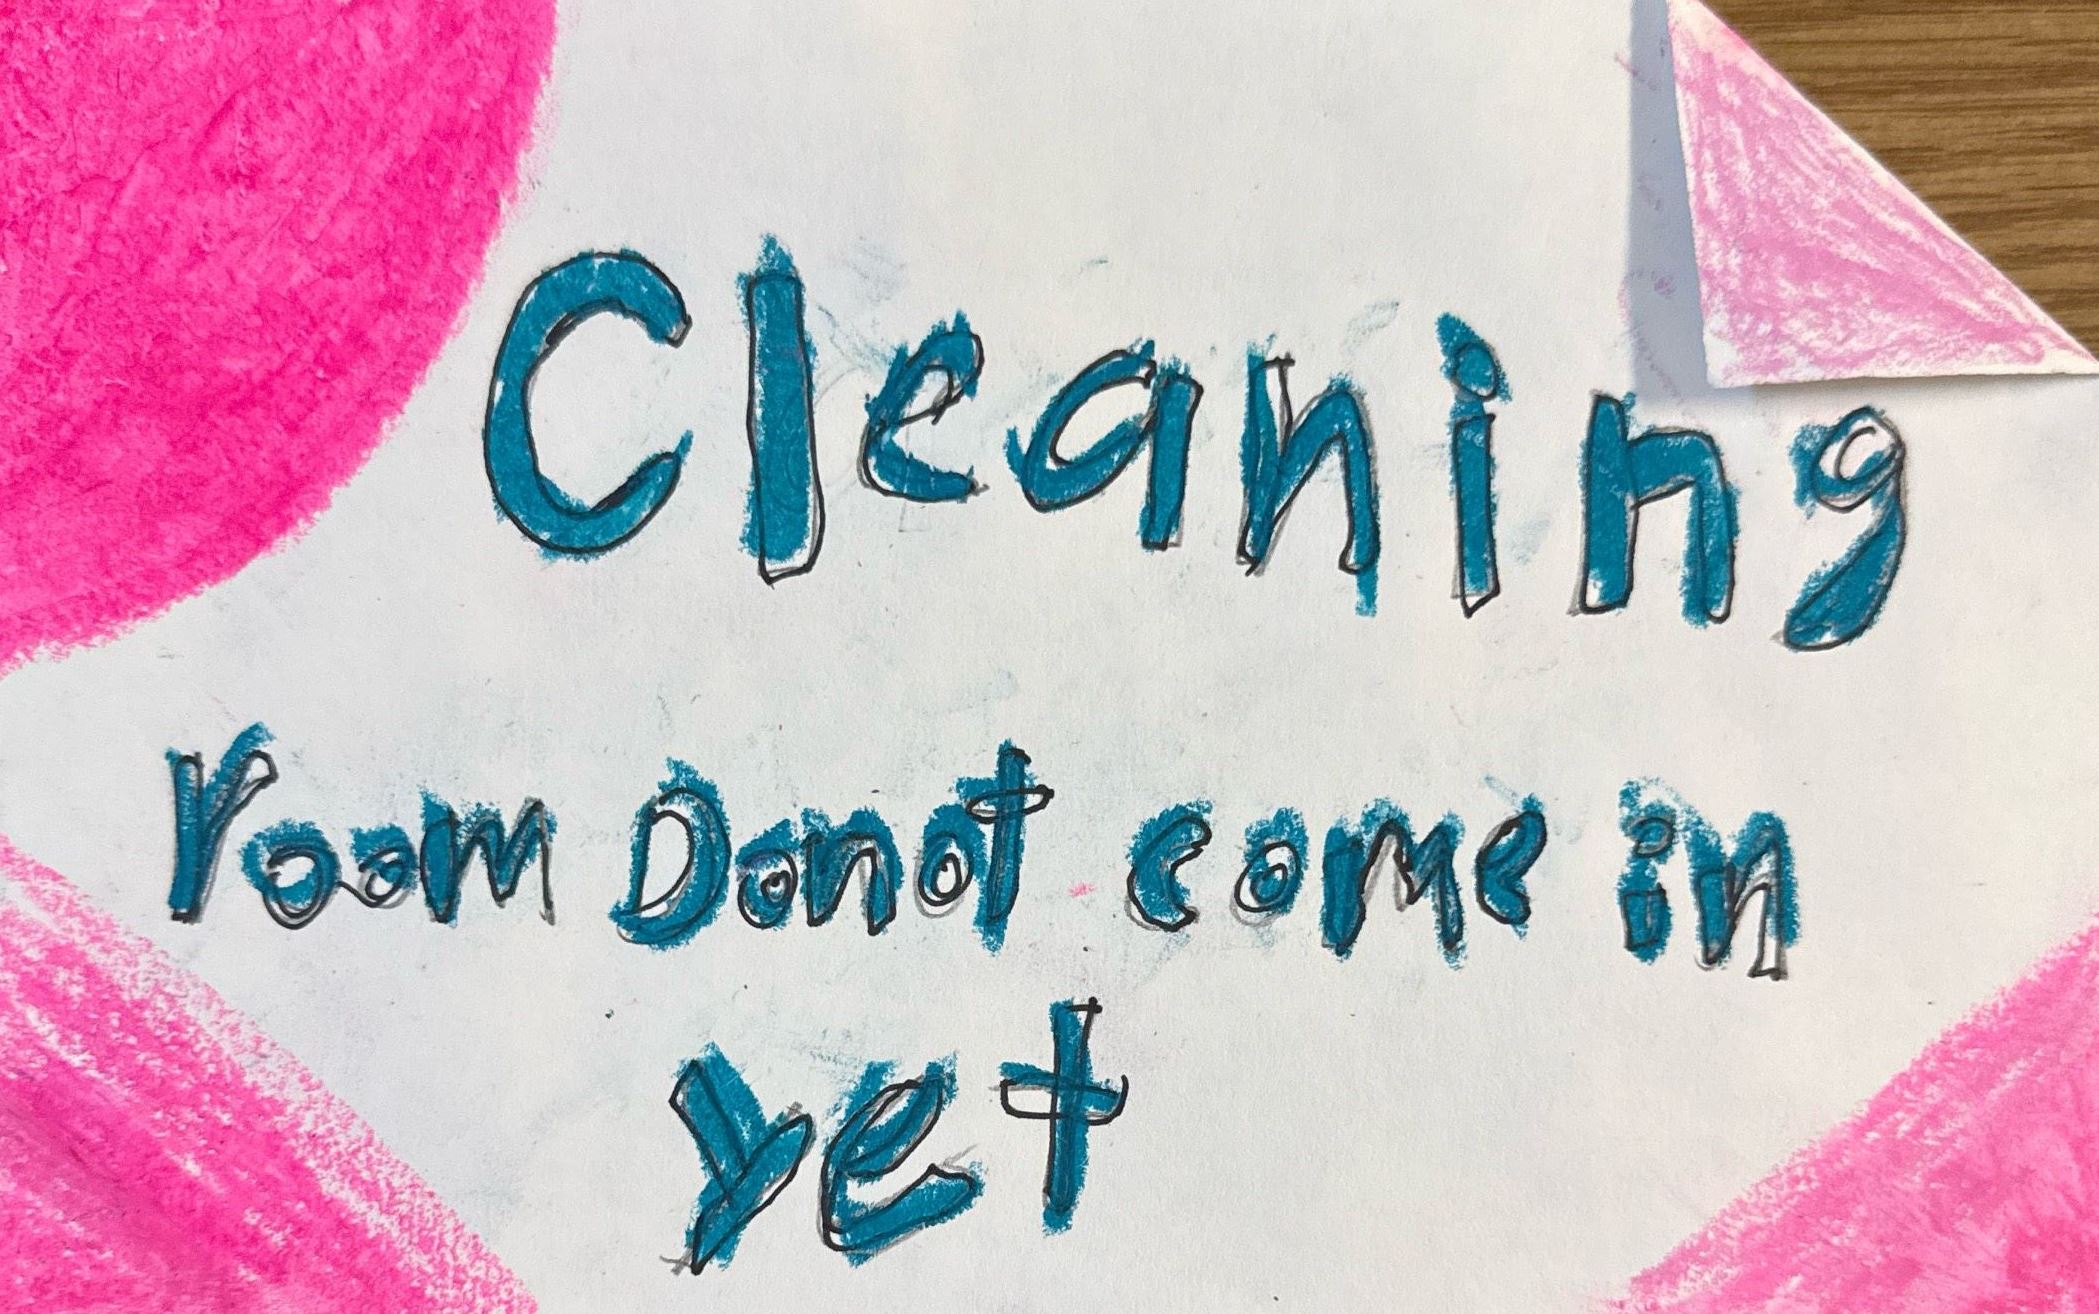 Cleaning
room Do not come in
yet